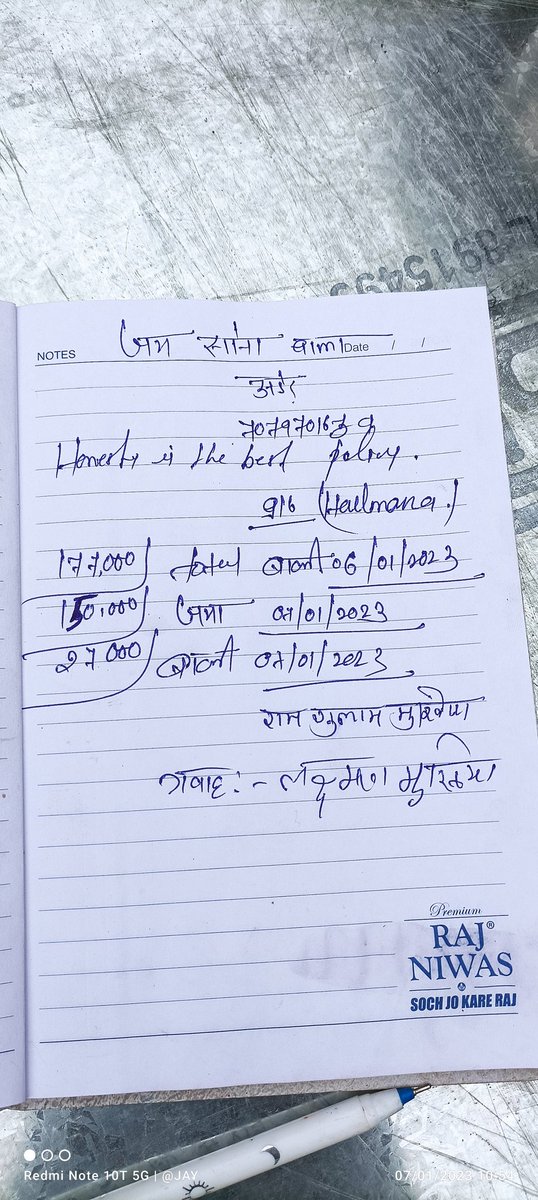 NOTES जय सोना वाला Date / /
Honesty is the best policy.
916 (Hallmark)
177,000/ Total बाकी 06/01/2023
150,000/ जमा 07/01/2023
27000/ बाकी 07/01/2023
राम गुलाम मुखिया
गवाह :- लक्ष्मण मुखिया
Premium
RAJ®
NIWAS
SOCH JO KARE RAJ
Redmi Note 10T 5G | @JAY 07/01/2023 10:59